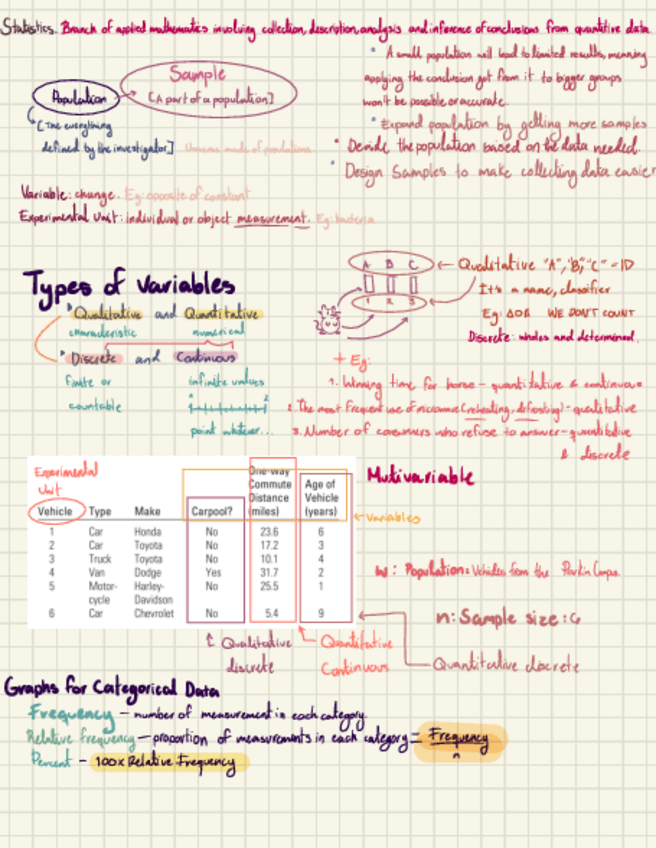 Statistics. Branch of applied mathematics involving collection, description, analysis and inference of conclusions from quantitive data.
• A small population will lead to limited results, meaning
applying the conclusion got from it to bigger groups
won't be possible or accurate.
Sample
[A part of a population]
Population
[The everything
defined by the investigator]
made of populations
• Expand population by getting more samples
• Devide the population based on the data needed.
• Design Samples to make collecting data easier
Variable: change. Eg: opposite of constant
Experimental Unit: individual or object measurement. Eg: bacteria
Types of variables
• Qualitative and Quantitative
characteristic numerical
• Discrete and Continous
finite or infinite values
countable
point whatever...
A B C
1 2 3
Qualitative "A","B","C" = ID
It's a name, classifier
Eg: WE DON'T COUNT
Discrete: wholes and determined.
+ Eg:
1. Winning time for horse - quantitative & continuous
2. The most frequent use of microwave (reheating, defrosting) - qualitative
3. Number of consumers who refuse to answer - quantitative
& discrete
Experimental
Unit
Vehicle Type Make Carpool? One-way Commute Distance (miles) Age of Vehicle (years)
1 Car Honda No 23.6 6
2 Car Toyota No 17.2 3
3 Truck Toyota No 10.1 4
4 Van Dodge Yes 31.7 2
5 Motor-cycle Harley-Davidson No 25.5 1
6 Car Chevrolet No 5.4 9
Mutivariable
← Variables
Population = Vehicles from the
n: Sample size: 6
Qualitative
discrete
Quantitative
Continuous
Quantitative discrete
Graphs for Categorical Data
Frequency - number of measurement in each category
Relative frequency - proportion of measurements in each category = Frequency
n
Percent - 100x Relative Frequency